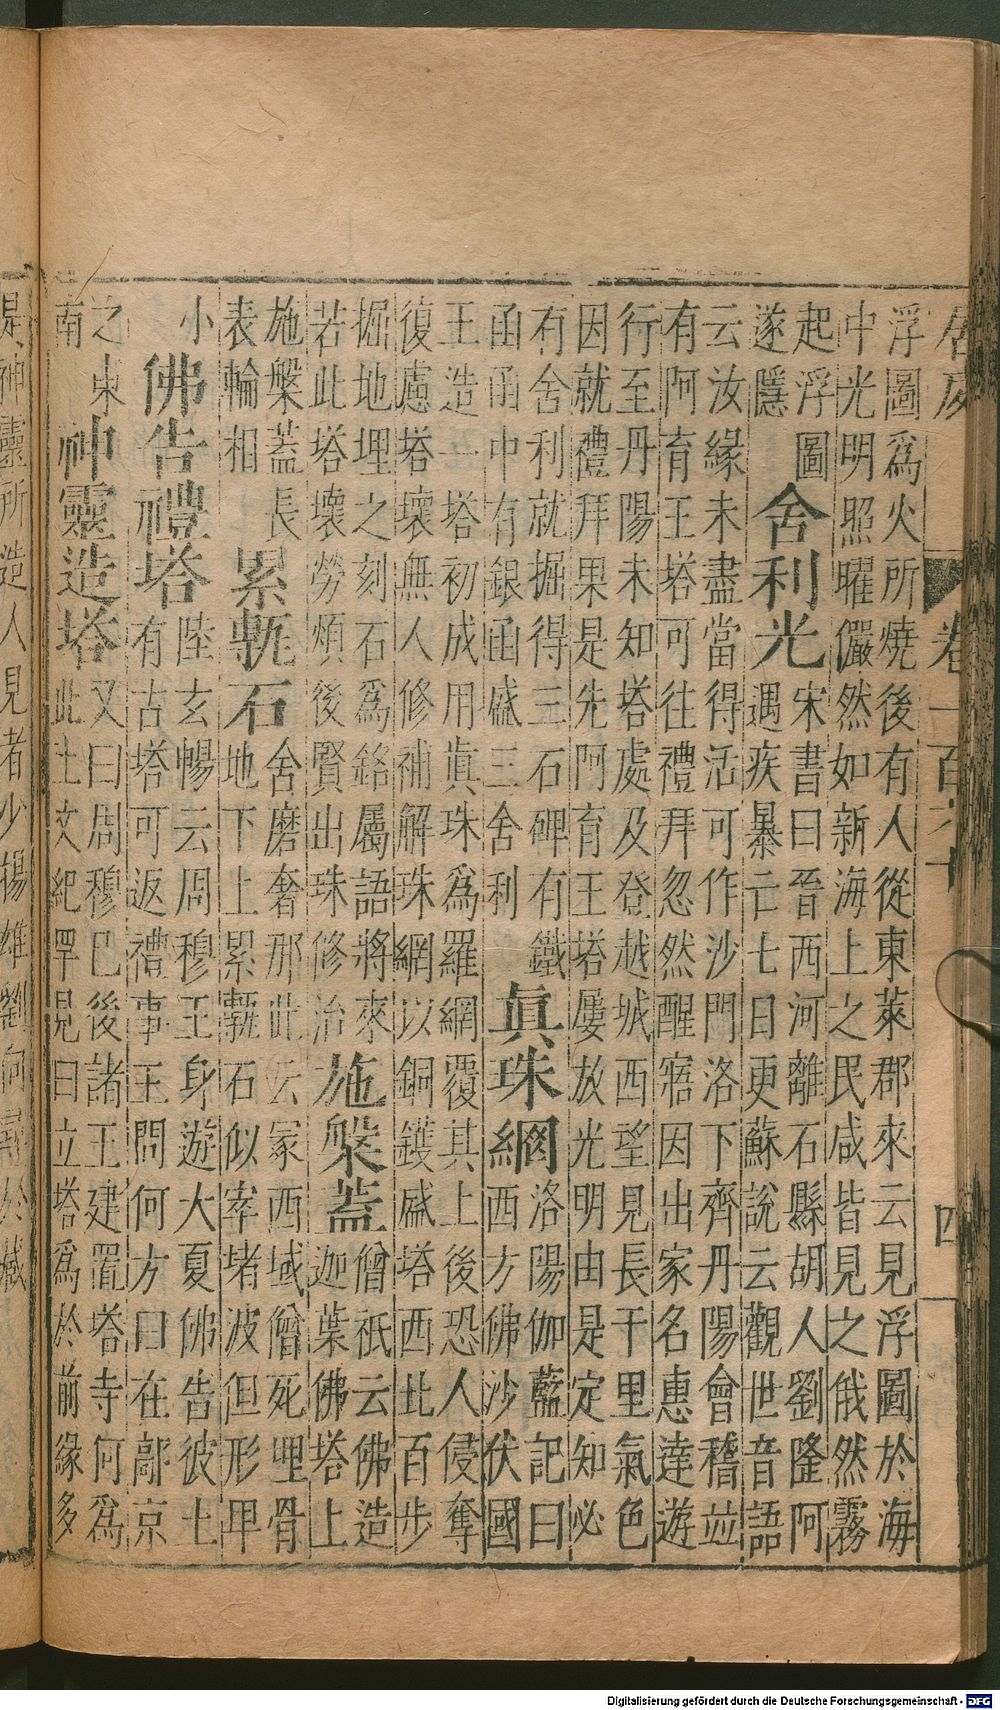 居處 卷一百八十 四
浮圖爲火所燒後有人從東萊郡來云見浮圖於海
中光明照曜儼然如新海上之民咸皆見之俄然霧
起浮圖
遂隱
舍利光
宋書曰晉西河離石縣胡人劉隆阿
遇疾暴亡七日更蘇說云觀世音語
云汝緣未盡當得活可作沙門洛下齊丹陽會稽竝
有阿育王塔可往禮拜忽然醒寤因出家名惠達遊
行至丹陽未知塔處及登越城西望見長干里氣色
因就禮拜果是先阿育王塔屢放光明由是定知必
有舍利就掘得三石碑有鐵
函函中有銀函盛三舍利
眞珠網
洛陽伽藍記曰
西方佛沙伏國
王造一塔初成用眞珠爲羅網覆其上後恐人侵奪
復慮塔壞無人修補解珠網以銅鑊盛塔西北百步
掘地埋之刻石爲銘屬語將來
若此塔壞勞煩後賢出珠修治
施槃蓋
僧祇云佛造
迦葉佛塔上
施槃蓋長
表輪相
累甎石
舍磨奢那此云冢西域僧死埋骨
地下上累甎石似窣堵波但形卑
小
佛告禮塔
陸玄暢云周穆王身遊大夏佛告彼土
有古塔可返禮事王問何方曰在鄗京
之東
南
神靈造塔
又曰周穆已後諸王建置塔寺何爲
此土文紀罕見曰立塔爲於前緣多
是神靈所造人見者少揚雄劉向尋於藏
Digitalisierung gefördert durch die Deutsche Forschungsgemeinschaft - DFG